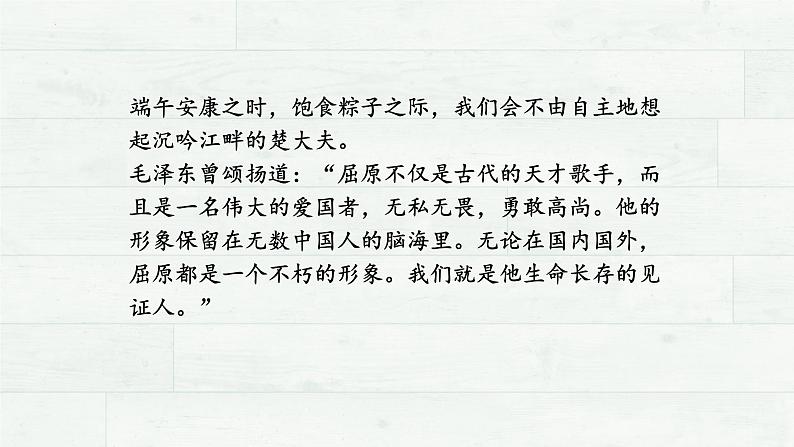 端午安康之时，饱食粽子之际，我们会不由自主地想
起沉吟江畔的楚大夫。
毛泽东曾颂扬道：“屈原不仅是古代的天才歌手，而
且是一名伟大的爱国者，无私无畏，勇敢高尚。他的
形象保留在无数中国人的脑海里。无论在国内国外，
屈原都是一个不朽的形象。我们就是他生命长存的见
证人。”